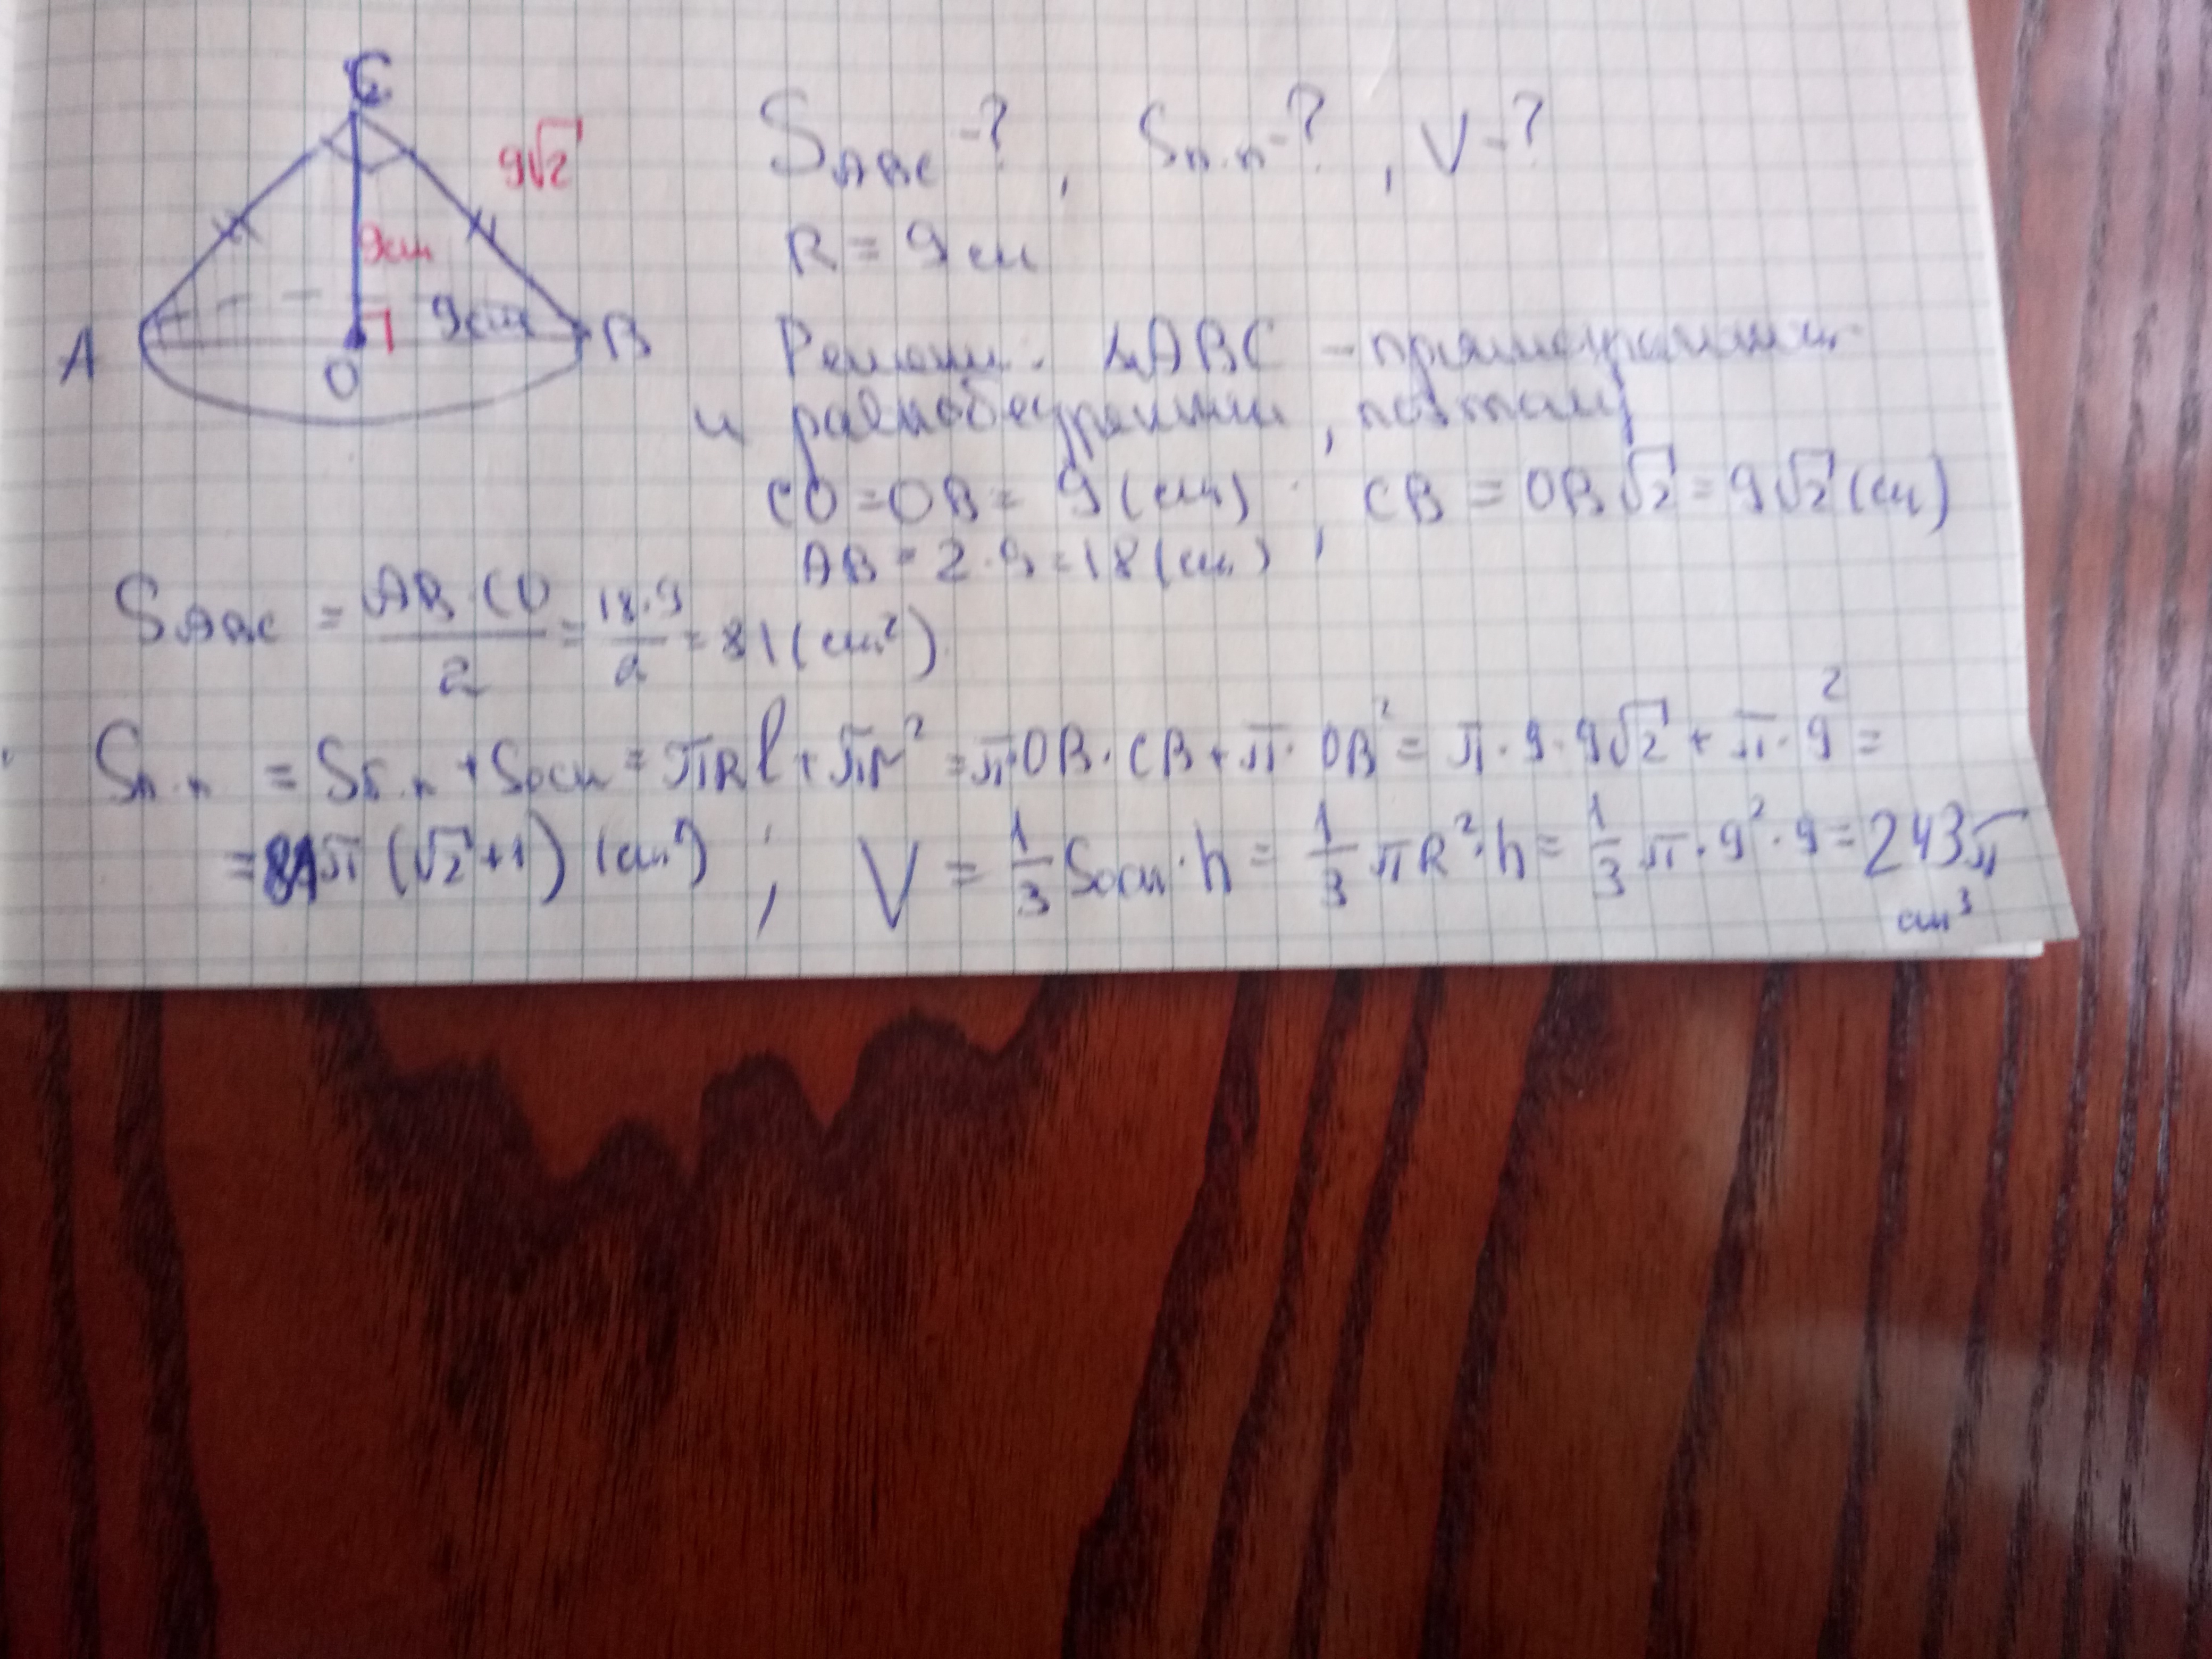 C
9√2
9см
9см
A
B
O
S_ABC -? , Sп.п -? , V -?
R = 9 см
Решени: △ABC – прямоугольный
и равнобедренный, поэтому
CO = OB = 9 (см) ; CB = OB√2 = 9√2 (см)
AB = 2·9 = 18 (см) ,
S_ABC = AB·CO/2 = 18·9/2 = 81 (см²)
Sп.п = Sб.п + Sосн = πRl + πr² = π·OB·CB + π·OB² = π·9·9√2 + π·9² =
= 81π (√2+1) (см²) ; V = 1/3 Sосн·h = 1/3 πR²·h = 1/3 π·9²·9 = 243π
см³